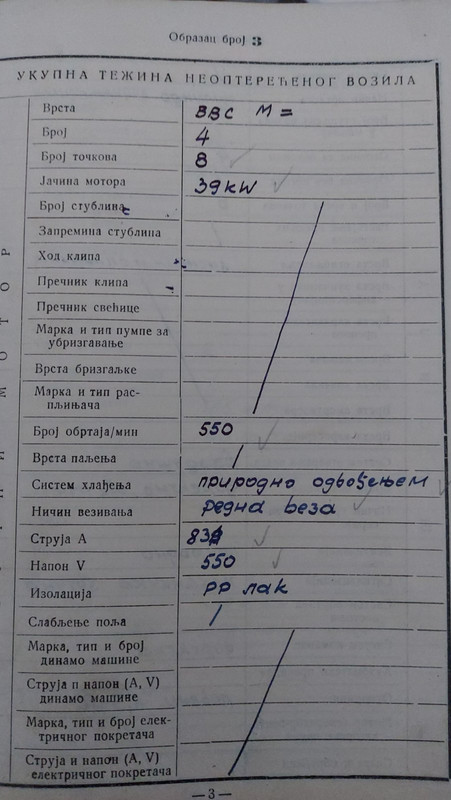 Образац број 3
УКУПНА ТЕЖИНА НЕОПТЕРЕЋЕНОГ ВОЗИЛА
Врста BBC M =
Број 4
Број точкова 8
Јачина мотора 39kW
Број стублина
Запремина стублина
Ход клипа
Пречник клипа
Пречник свећице
Марка и тип пумпе за
убризгавање
Врста бризгаљке
Марка и тип рас-
пљињача
Број обртаја/мин 550
Врста паљења /
Систем хлађења природно одвођењем
Ничин везивања редна веза
Струја А
Напон V 550
Изолација РР лак
Слабљење поља /
Марка, тип и број
динамо машине
Струја п напон (А, V)
динамо машине
Марка, тип и број елек-
тричног покретача
Струја и напон (А, V)
електричног покретача
—3—